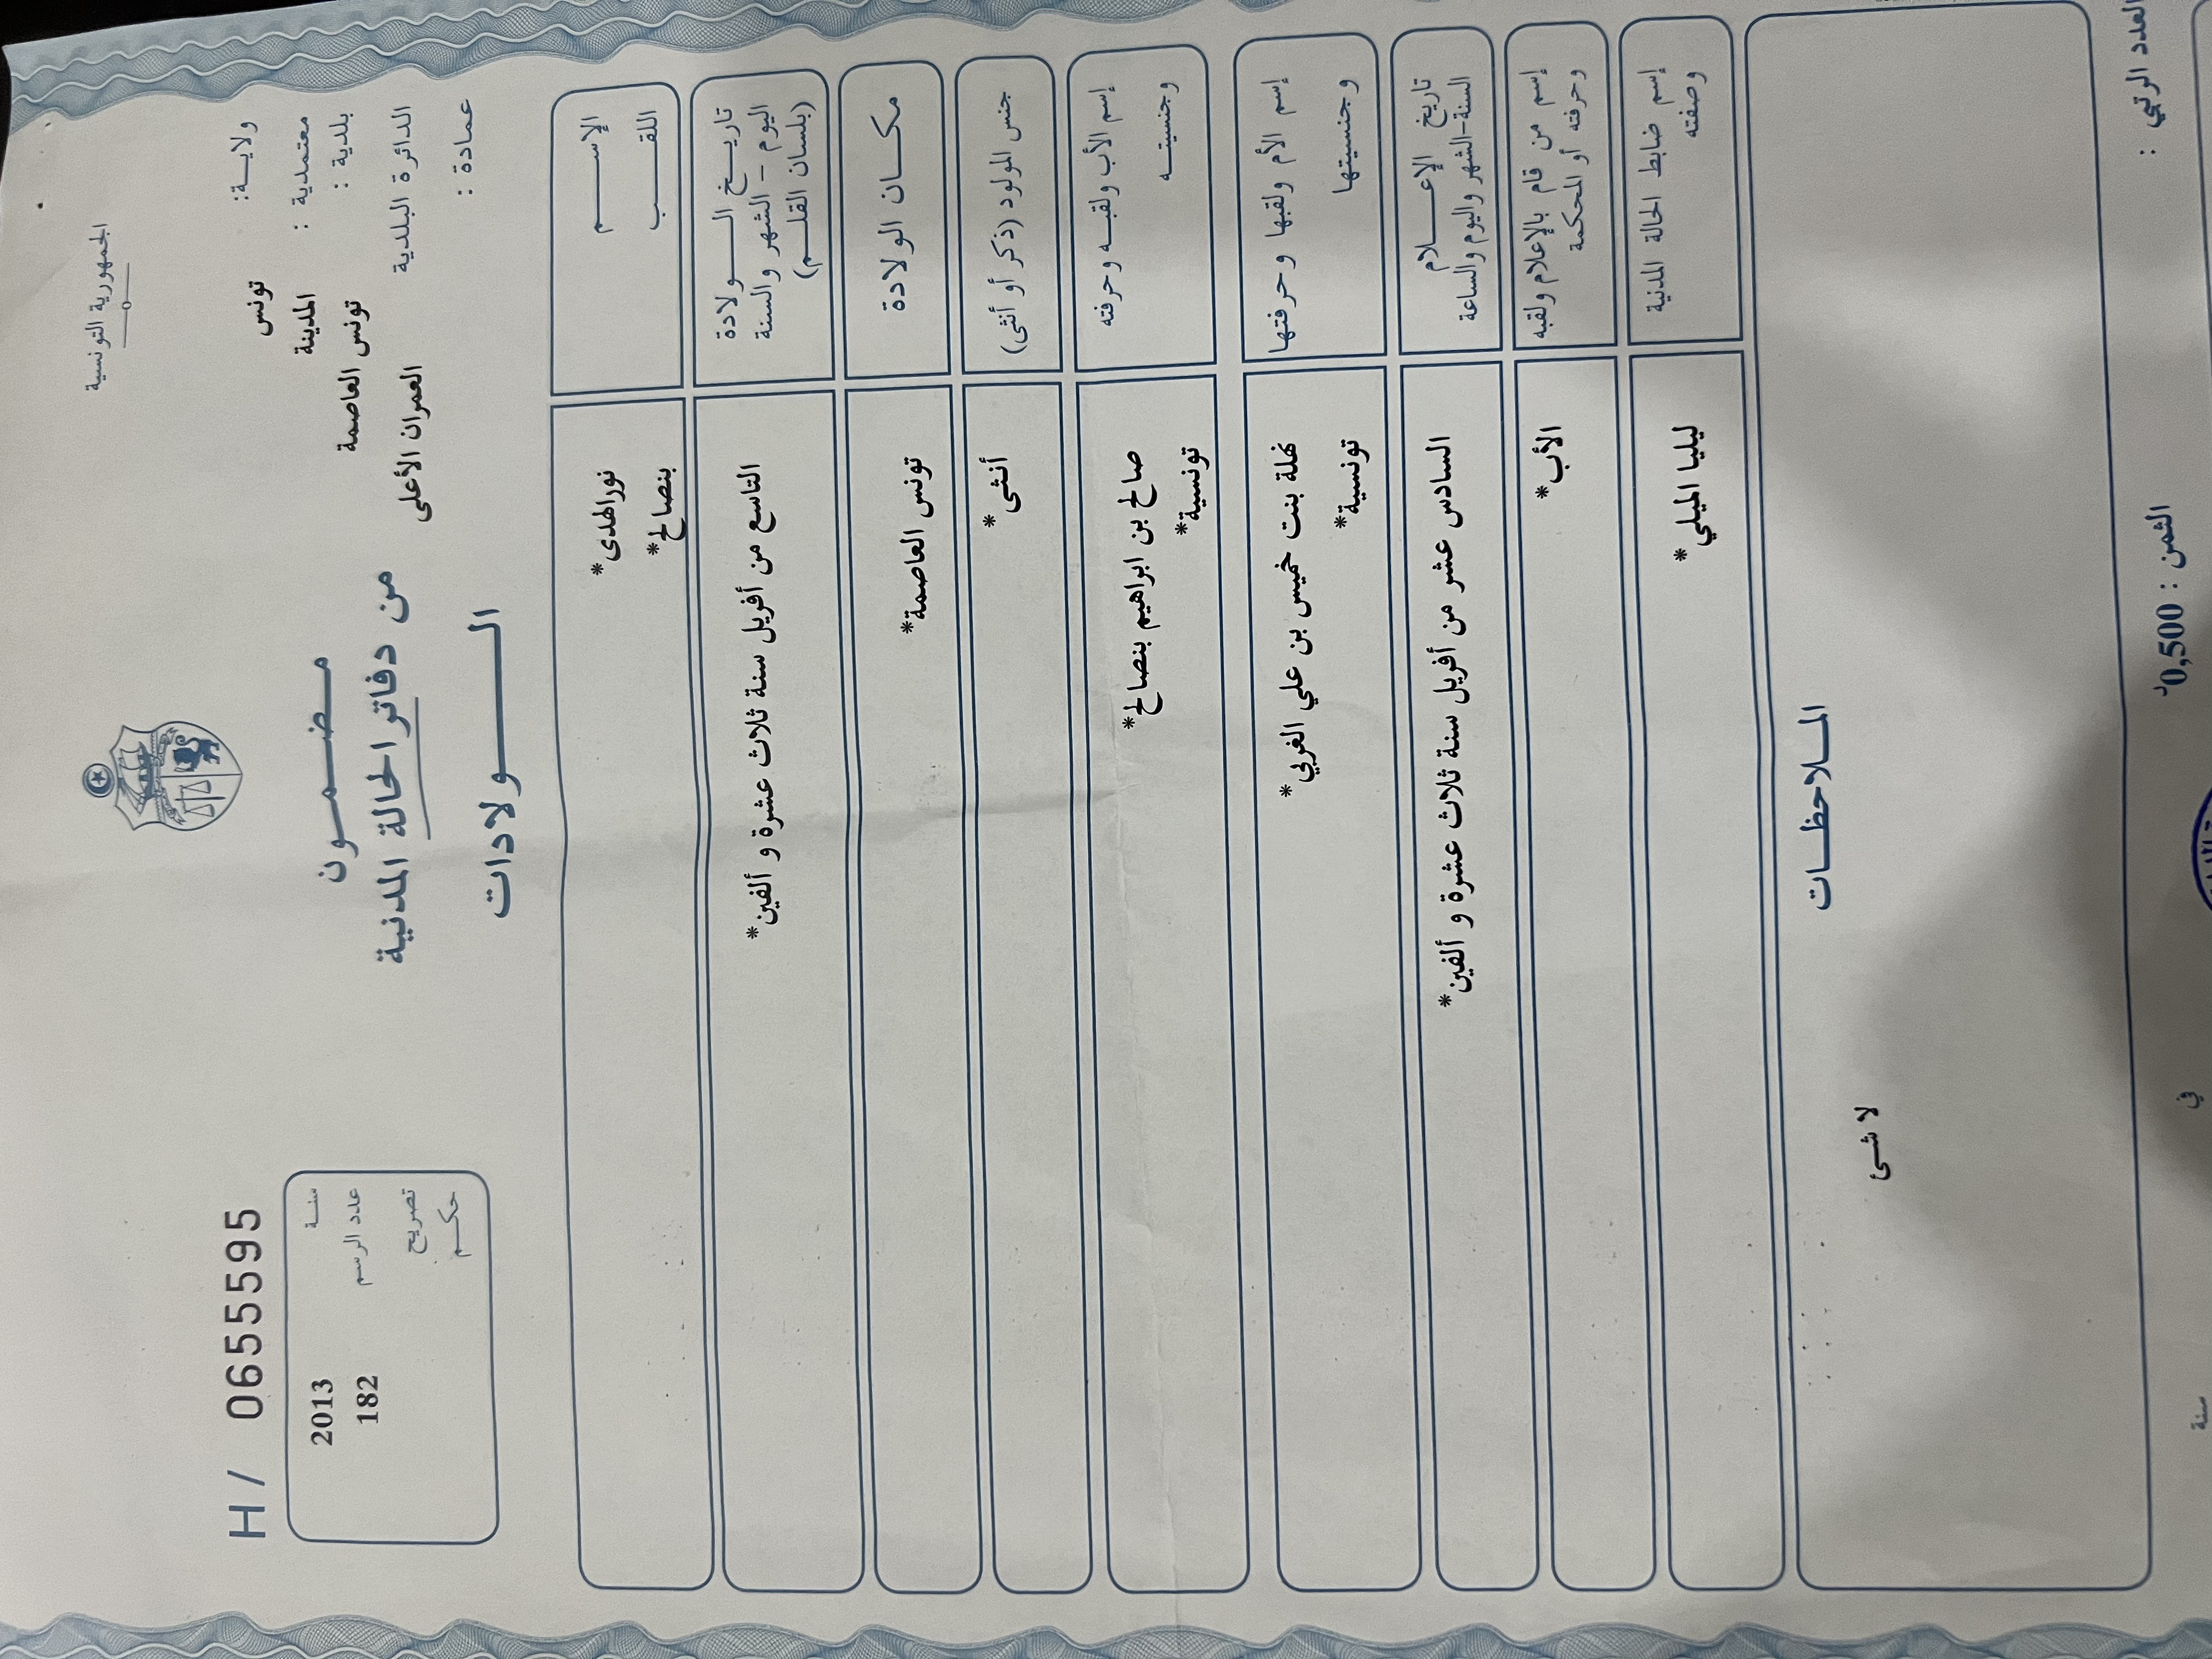 الجمهورية التونسية
ولايـة: تونس
معتمدية : المدينة
بلدية : تونس العاصمة
الدائرة البلدية العمران الأعلى
عمادة :
H/ 0655595
سنـة 2013
عدد الرسم 182
تصريح
حكـم
مـضـمـون
من دفاتر الحالة المدنية
الـولادات
الإسـم نورالهدى*
اللقـب بنصالح*
تاريـخ الـولادة
اليوم – الشهر والسنة
(بلسان القلـم)
التاسع من أفريل سنة ثلاث عشرة و ألفين*
مكـان الولادة تونس العاصمة*
جنس المولود (ذكر أو أنثى) أنثى *
إسم الأب ولقبـه وحرفته صالح بن ابراهيم بنصالح*
وجنسيتـه تونسية*
إسم الأم ولقبها وحرفتها نهلة بنت خميس بن علي الغربي*
وجنسيتها تونسية*
تاريخ الإعـلام
السنة-الشهر واليوم والساعة
السادس عشر من أفريل سنة ثلاث عشرة و ألفين*
إسم من قام بالإعلام ولقبه
وحرفته أو المحكمة
الأب*
إسم ضابط الحالة المدنية
وصفته
ليليا الميلي *
المـلاحظـات
لا شئ
العدد الرتبي :
الثمن : 0,500د
في
سنة